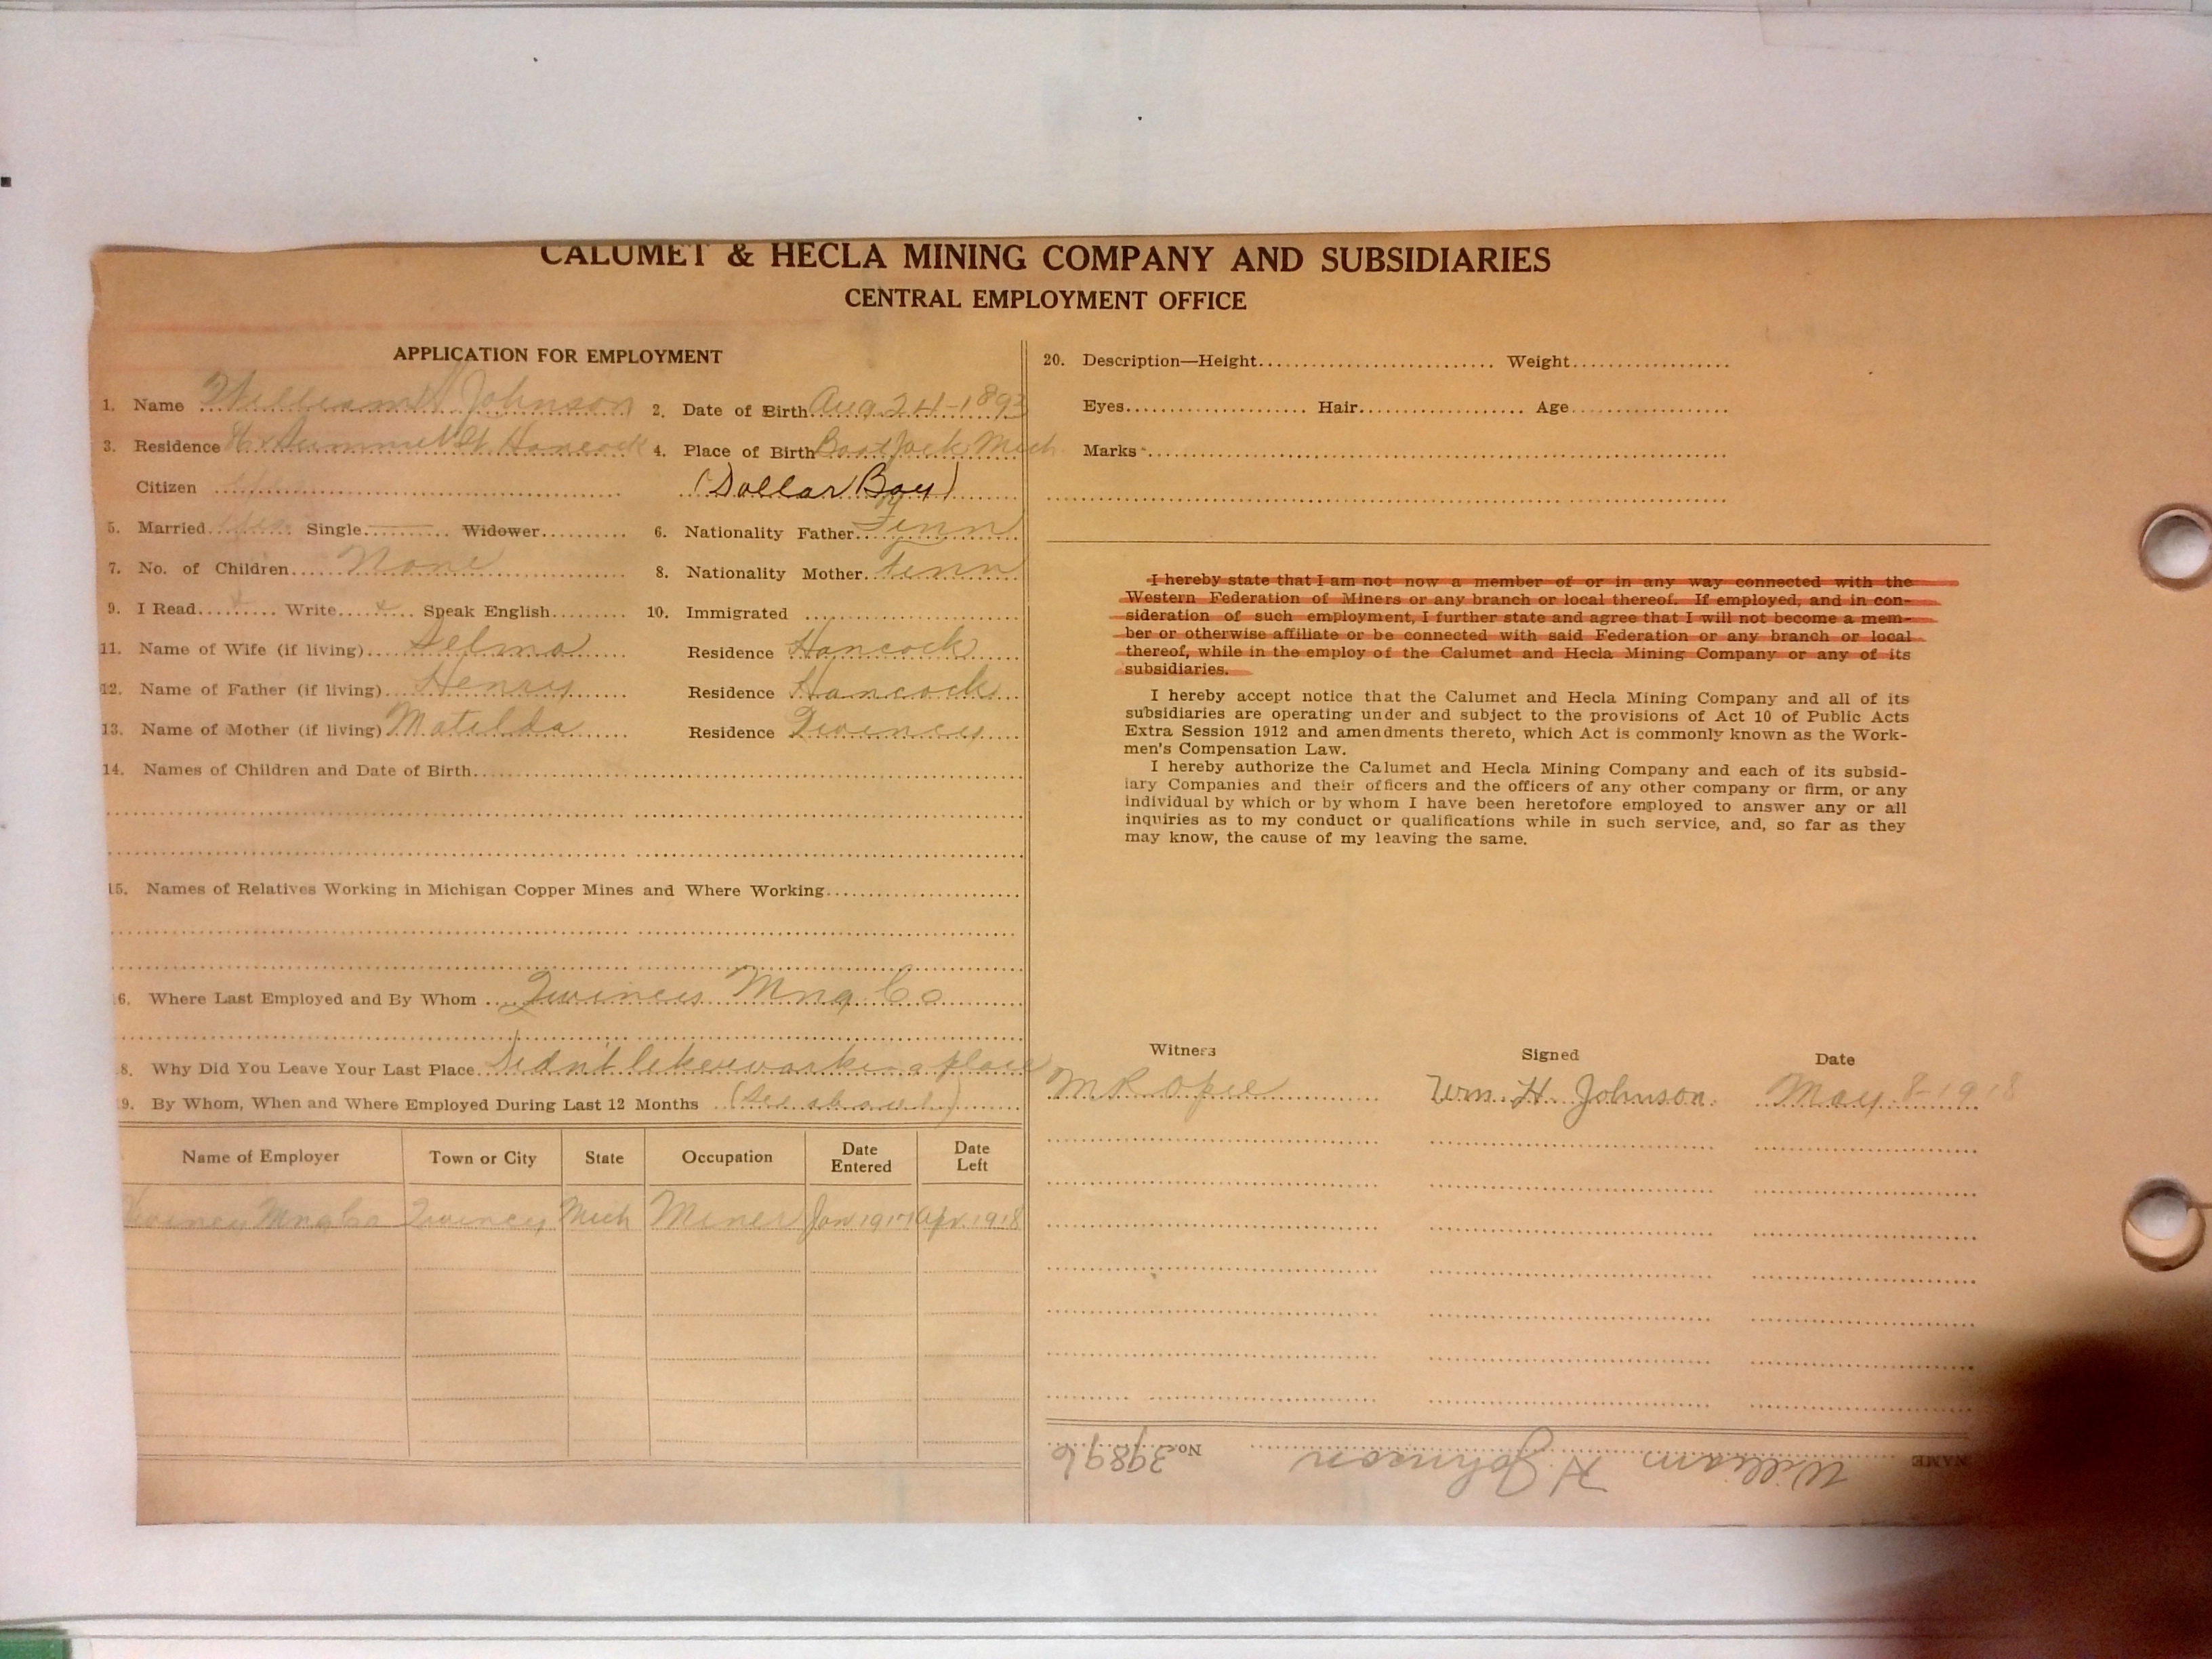 CALUMET & HECLA MINING COMPANY AND SUBSIDIARIES
CENTRAL EMPLOYMENT OFFICE
APPLICATION FOR EMPLOYMENT
1. Name William H Johnson 2. Date of Birth Aug 24-1893
3. Residence Summit St. Hancock 4. Place of Birth Boot Jack Mich
Citizen (Dollar Bay)
5. Married Yes Single Widower 6. Nationality Father Finn
7. No. of Children None 8. Nationality Mother Finn
9. I Read x Write x Speak English 10. Immigrated
11. Name of Wife (if living) Selma Residence Hancock
12. Name of Father (if living) Henry Residence Hancock
13. Name of Mother (if living) Matilda Residence Quincy
14. Names of Children and Date of Birth
15. Names of Relatives Working in Michigan Copper Mines and Where Working
16. Where Last Employed and By Whom Quincy Mng Co
18. Why Did You Leave Your Last Place Didn't like working place
19. By Whom, When and Where Employed During Last 12 Months (See above)
Name of Employer Town or City State Occupation Date Entered Date Left
Quincy Mng Co Quincy Mich Miner Jan 1917 Apr. 1918
20. Description—Height Weight
Eyes Hair Age
Marks
I hereby state that I am not now a member of or in any way connected with the
Western Federation of Miners or any branch or local thereof. If employed, and in con-
sideration of such employment, I further state and agree that I will not become a mem-
ber or otherwise affiliate or be connected with said Federation or any branch or local
thereof, while in the employ of the Calumet and Hecla Mining Company or any of its
subsidiaries.
I hereby accept notice that the Calumet and Hecla Mining Company and all of its
subsidiaries are operating under and subject to the provisions of Act 10 of Public Acts
Extra Session 1912 and amendments thereto, which Act is commonly known as the Work-
men's Compensation Law.
I hereby authorize the Calumet and Hecla Mining Company and each of its subsid-
iary Companies and their officers and the officers of any other company or firm, or any
individual by which or by whom I have been heretofore employed to answer any or all
inquiries as to my conduct or qualifications while in such service, and, so far as they
may know, the cause of my leaving the same.
Witness Signed Date
M R Opie Wm. H. Johnson. May 8-1918
NAME William H Johnson No. 39896